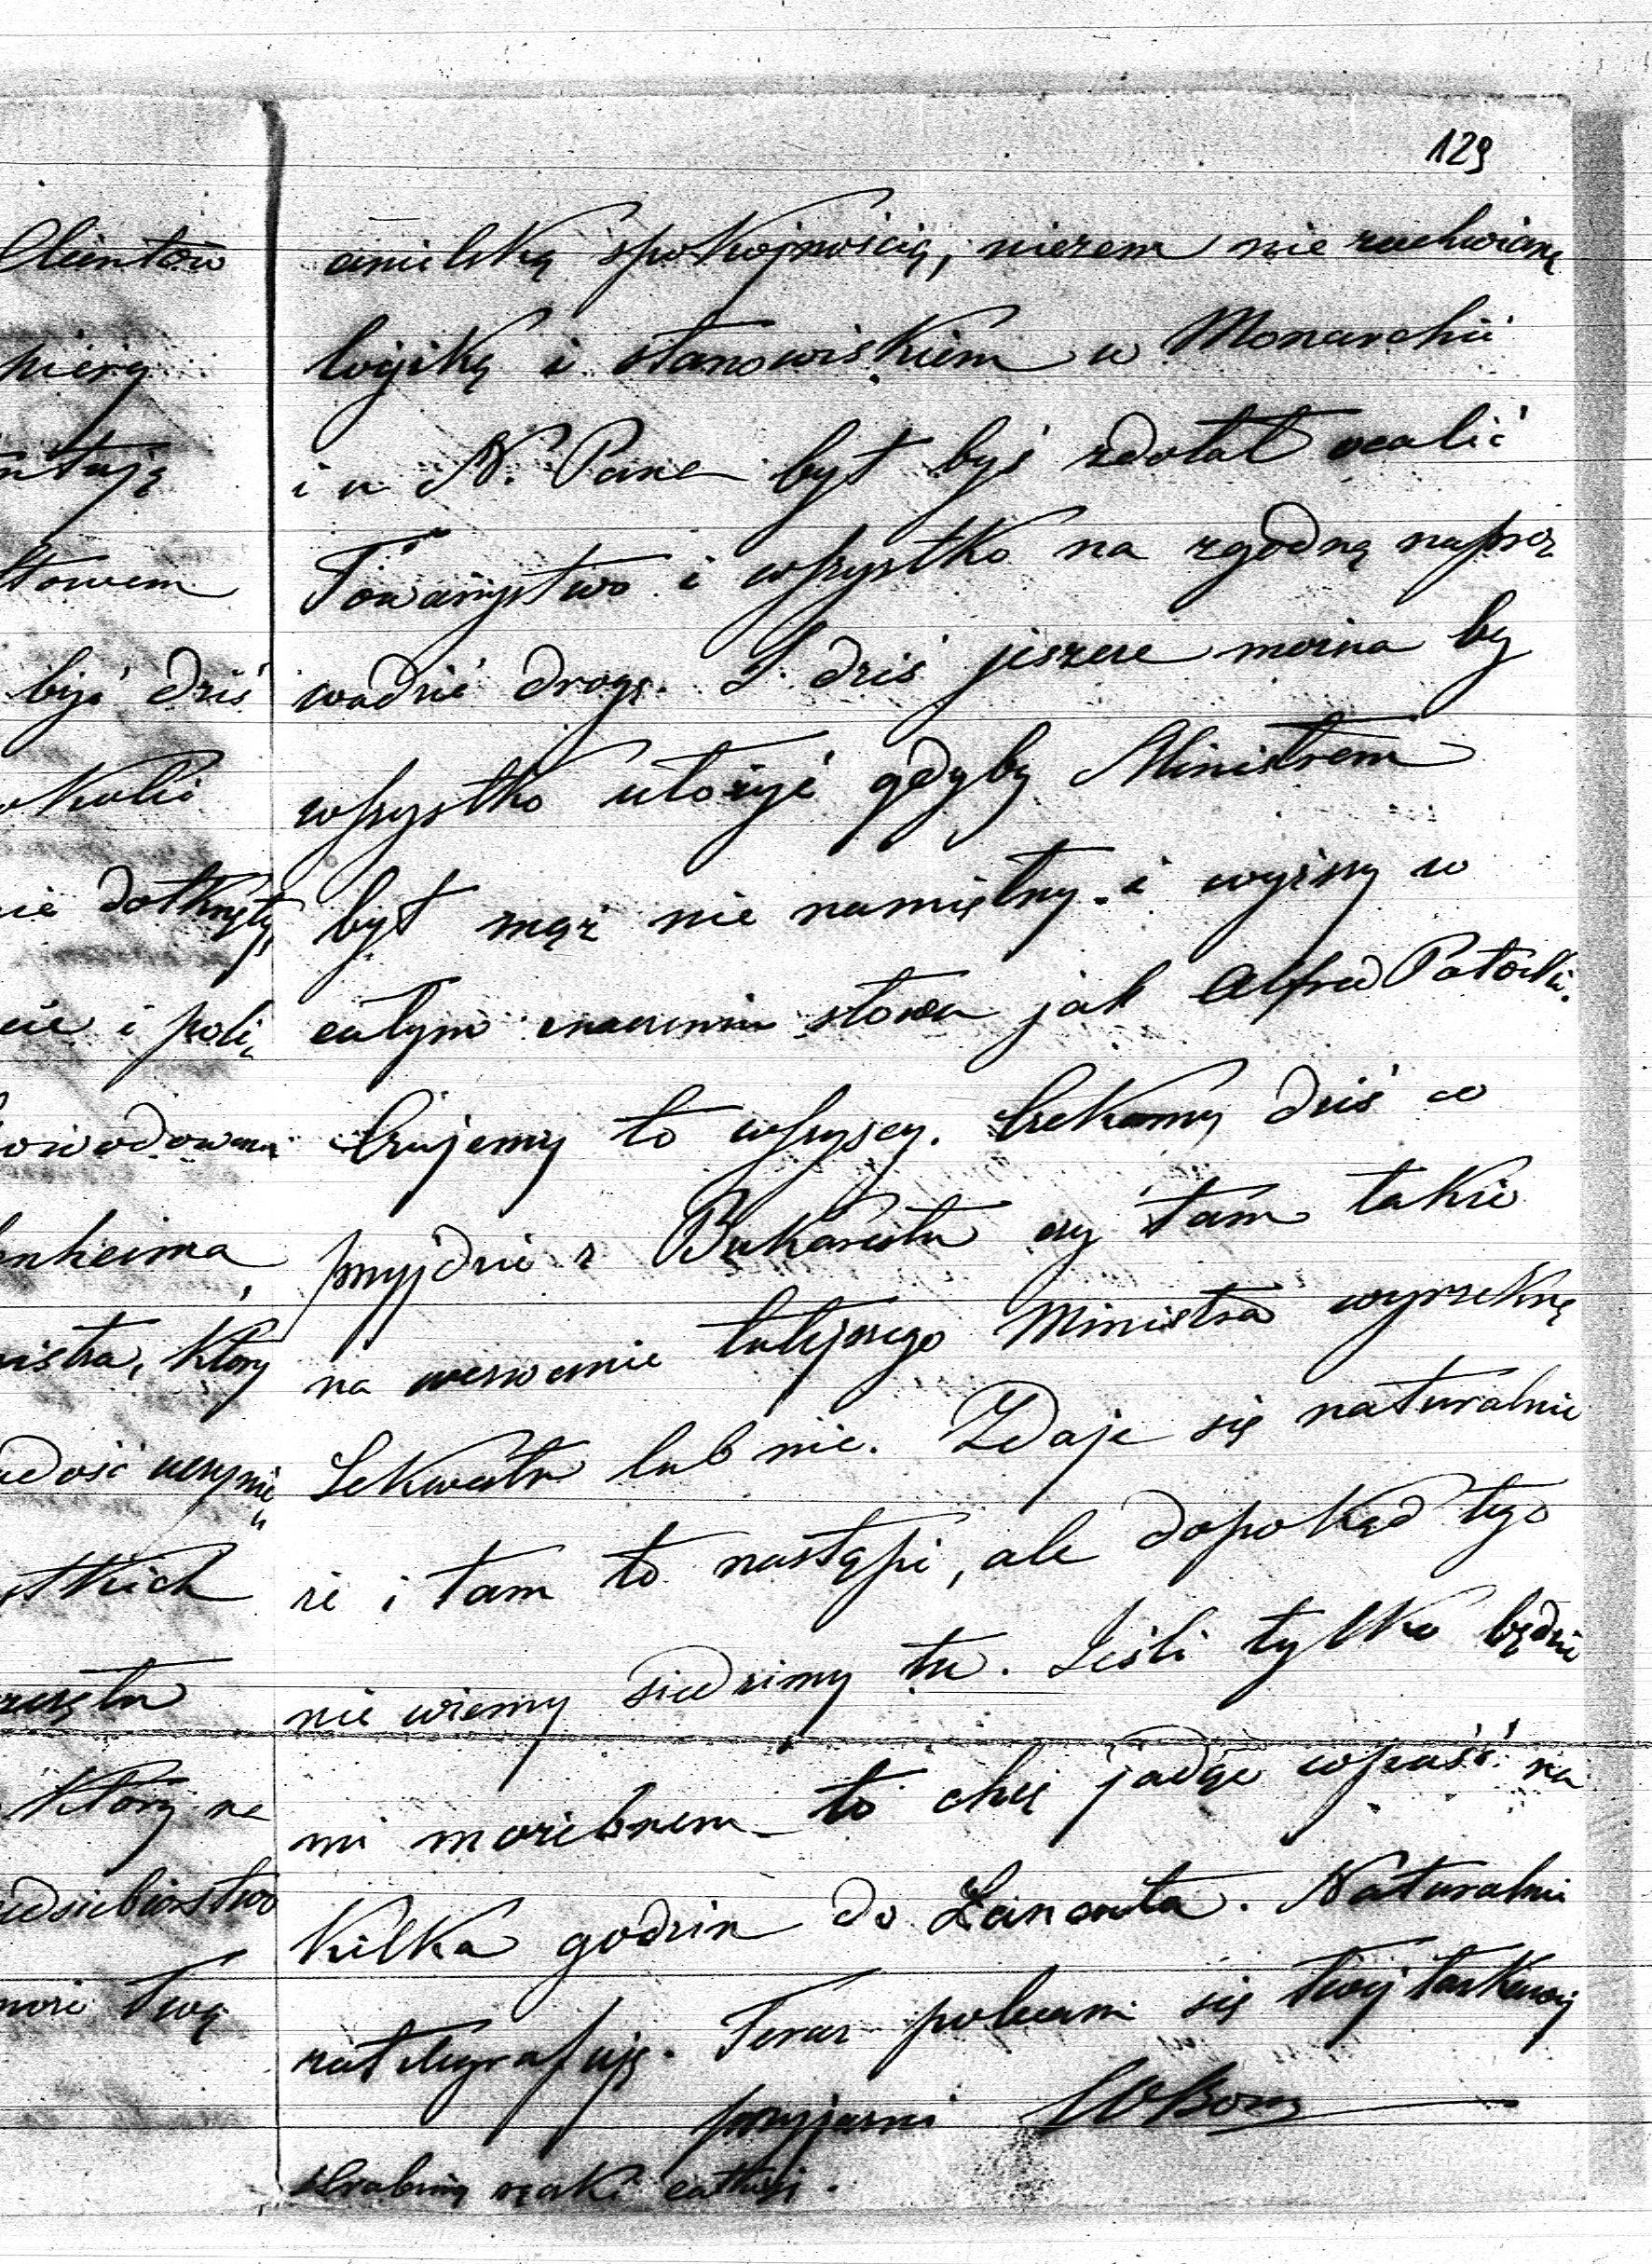 129
Clientów
pierą
ntują
łowem
być dziś
okolici
nie dotknęły
cie i poli„
owodowana
enheima
nistra, który
adość uczynie„
stkich
reszta
który na
edsiebiorstwo
może Twą
anielską spokojnością, niczem nie zachwianą
logiką i stanowiskiem w Monarchii
i u N. Pana był byś zdołał ocalić
Towarzystwo i wszystko na zgodną napro
wadzić drogę. I dziś jeszcze można by
wszystko ułożyć gdyby Ministrem
był mąż nie namiętny i wyższy w
całym znaczeniu słowa jak Alfred Potocki.
Czujemy to wszyscy. Czekamy dziś co
przyjdzie z Bukaresztu czy tam także
na wezwanie tutejszego Ministra wyrzekną
Sekwestr lub nie. Zdaje się naturalnie
że i tam to nastąpi, ale dopokąd tego
nie wiemy siedzimy tu. Jeśli tylko będzie
mi możebnem to chcę jadąc wpaść na
kilka godzin do Łańcuta. Naturalnie
zatelegrafuję. Teraz polecam się Twej łaskawej
przyjaźni
Hrabinę rączki całuję.